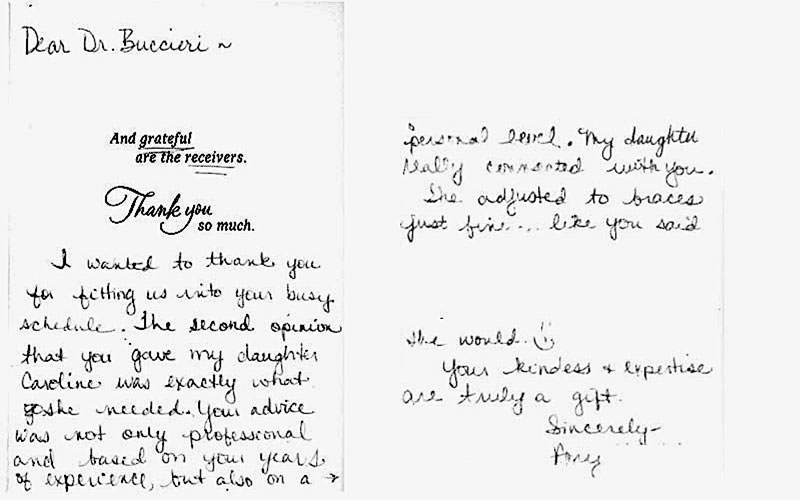 Dear Dr. Buccieri ~
And grateful
are the receivers.
Thank you
so much.
I wanted to thank you
for fitting us into your busy
schedule. The second opinion
that you gave my daughter
Caroline was exactly what
she needed. Your advice
was not only professional
and based on your years
of experience, but also on a →
personal level. My daughter
really connected with you.
She adjusted to braces
just fine... like you said
she would. :)
Your kindess + expertise
are truly a gift.
Sincerely-